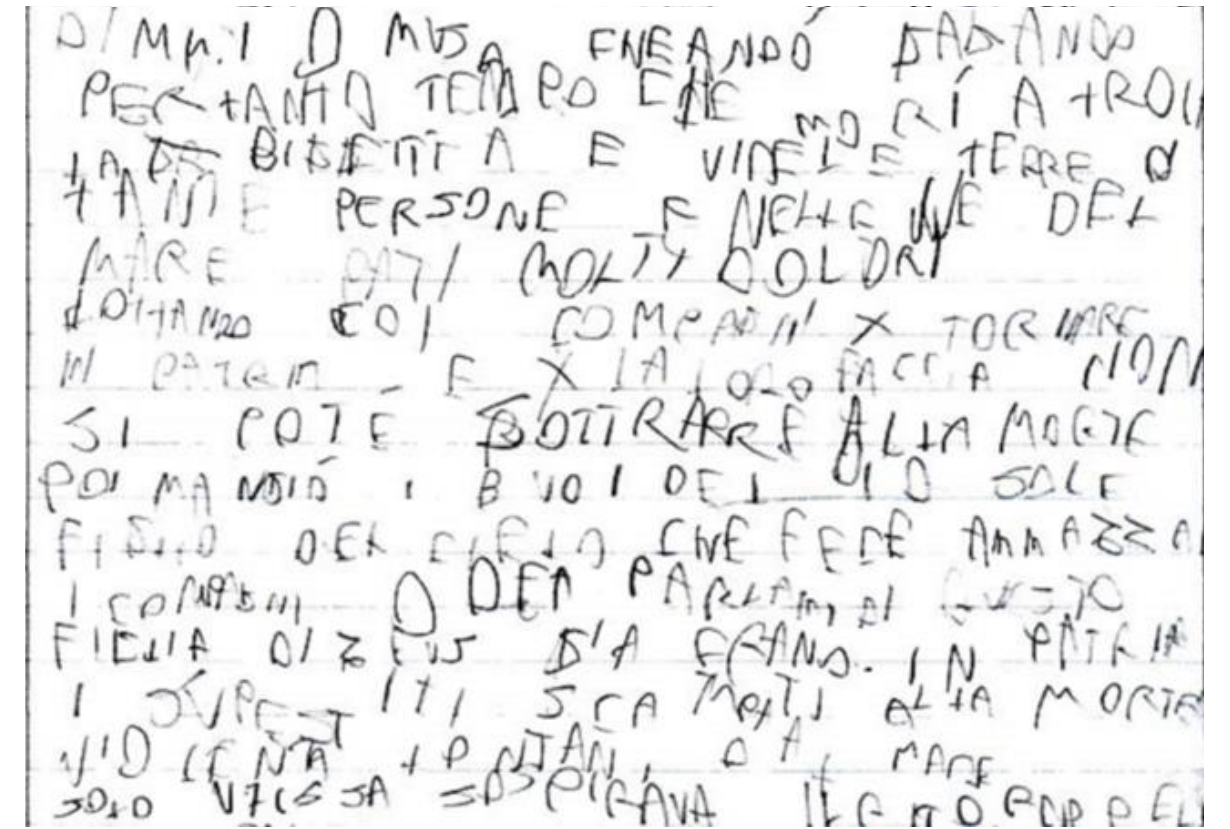 DIMMI O MUSA CHE ANDÓ VAGANDO
PER TANTO TEMPO CHE MORÍ A TROI
E VIDE LE TERRE
TANTE PERSONE E NELLE VIE DEL
MARE PATI MOLTI DOLORI
LOTTANDO COI COMPAGNI X TORNARE
IN PATRIA E X LA LORO FACCIA NON
SI POTÉ SOTTRARRE ALLA MORTE
POI MANGIÓ I BUOI DEL DIO SOLE
FIGLIO DEL CIELO CHE FECE AMMAZZA
I COMPAGNI O DEA PARLAMI DI QUESTO
FIGLIA DI ZEUS GIA ERANO IN PATRIA
I SCAMPATI ALLA MORTE
VIOLENTA LONTANI DAL MARE
SOLO ULISSE SOSPIRAVA